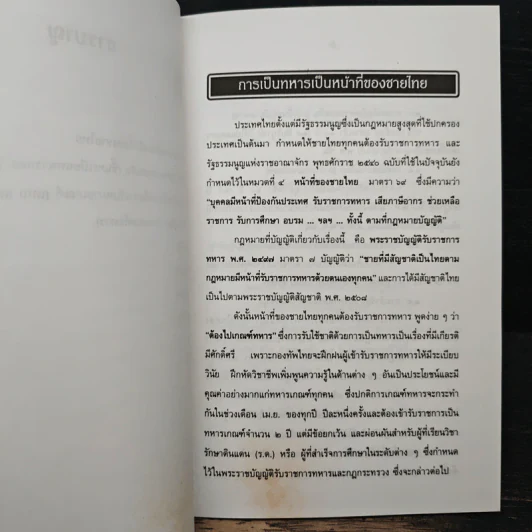 สารบาญ
การเป็นทหารเป็นหน้าที่ของชายไทย
ประเทศไทยตั้งแต่มีรัฐธรรมนูญซึ่งเป็นกฎหมายสูงสุดที่ใช้ปกครอง
ประเทศเป็นต้นมา กำหนดให้ชายไทยทุกคนต้องรับราชการทหาร และ
รัฐธรรมนูญแห่งราชอาณาจักร พุทธศักราช ๒๕๔๐ ฉบับที่ใช้ในปัจจุบันยัง
กำหนดไว้ในหมวดที่ ๔ หน้าที่ของชายไทย มาตรา ๖๙ ซึ่งมีความว่า
"บุคคลมีหน้าที่ป้องกันประเทศ รับราชการทหาร เสียภาษีอากร ช่วยเหลือ
ราชการ รับการศึกษา อบรม ... ฯลฯ ... ทั้งนี้ ตามที่กฎหมายบัญญัติ"
กฎหมายที่บัญญัติเกี่ยวกับเรื่องนี้ คือ พระราชบัญญัติรับราชการ
ทหาร พ.ศ. ๒๔๙๗ มาตรา ๗ บัญญัติว่า "ชายที่มีสัญชาติเป็นไทยตาม
กฎหมายมีหน้าที่รับราชการทหารด้วยตนเองทุกคน" และการได้มีสัญชาติไทย
เป็นไปตามพระราชบัญญัติสัญชาติ พ.ศ. ๒๕๐๘
ดังนั้นหน้าที่ของชายไทยทุกคนต้องรับราชการทหาร พูดง่าย ๆ ว่า
"ต้องไปเกณฑ์ทหาร" ซึ่งการรับใช้ชาติด้วยการเป็นทหารเป็นเรื่องที่มีเกียรติ
มีศักดิ์ศรี เพราะกองทัพไทยจะฝึกฝนผู้เข้ารับราชการทหารให้มีระเบียบ
วินัย ฝึกหัดวิชาชีพเพิ่มพูนความรู้ในด้านต่าง ๆ อันเป็นประโยชน์และมี
คุณค่าอย่างมากแก่ทหารเกณฑ์ทุกคน ซึ่งปกติการเกณฑ์ทหารจะกระทำ
กันในช่วงเดือน เม.ย. ของทุกปี ปีละหนึ่งครั้งและต้องเข้ารับราชการเป็น
ทหารเกณฑ์จำนวน ๒ ปี แต่มีข้อยกเว้น และผ่อนผันสำหรับผู้ที่เรียนวิชา
รักษาดินแดน (ร.ด.) หรือ ผู้ที่สำเร็จการศึกษาในระดับต่าง ๆ ซึ่งกำหนด
ไว้ในพระราชบัญญัติรับราชการทหารและกฎกระทรวง ซึ่งจะกล่าวต่อไป